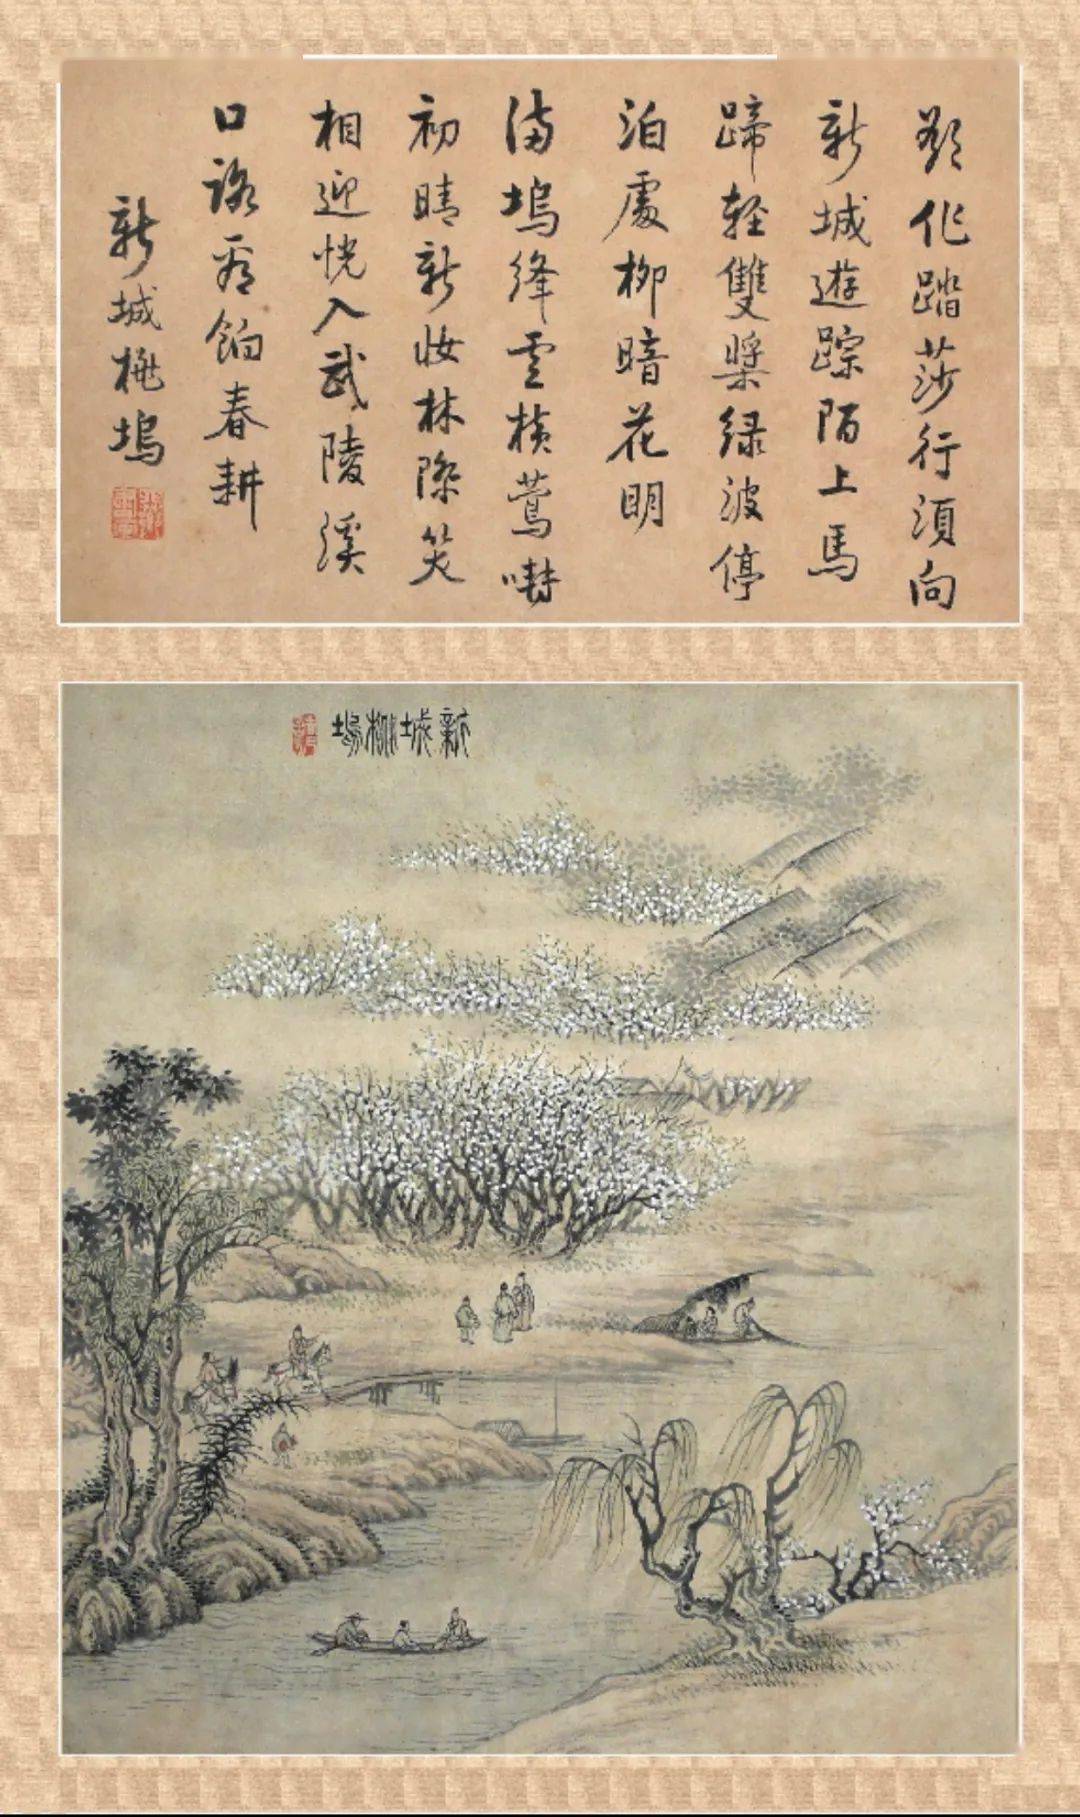 欲作踏莎行须向
新城遊踪陌上馬
蹄輕雙槳绿波停
泊處柳暗花明
满塢绛雲横鶯囀
初晴新妝林際笑
相迎恍入武陵溪
口說看餉春耕
新城桃塢
新城桃塢